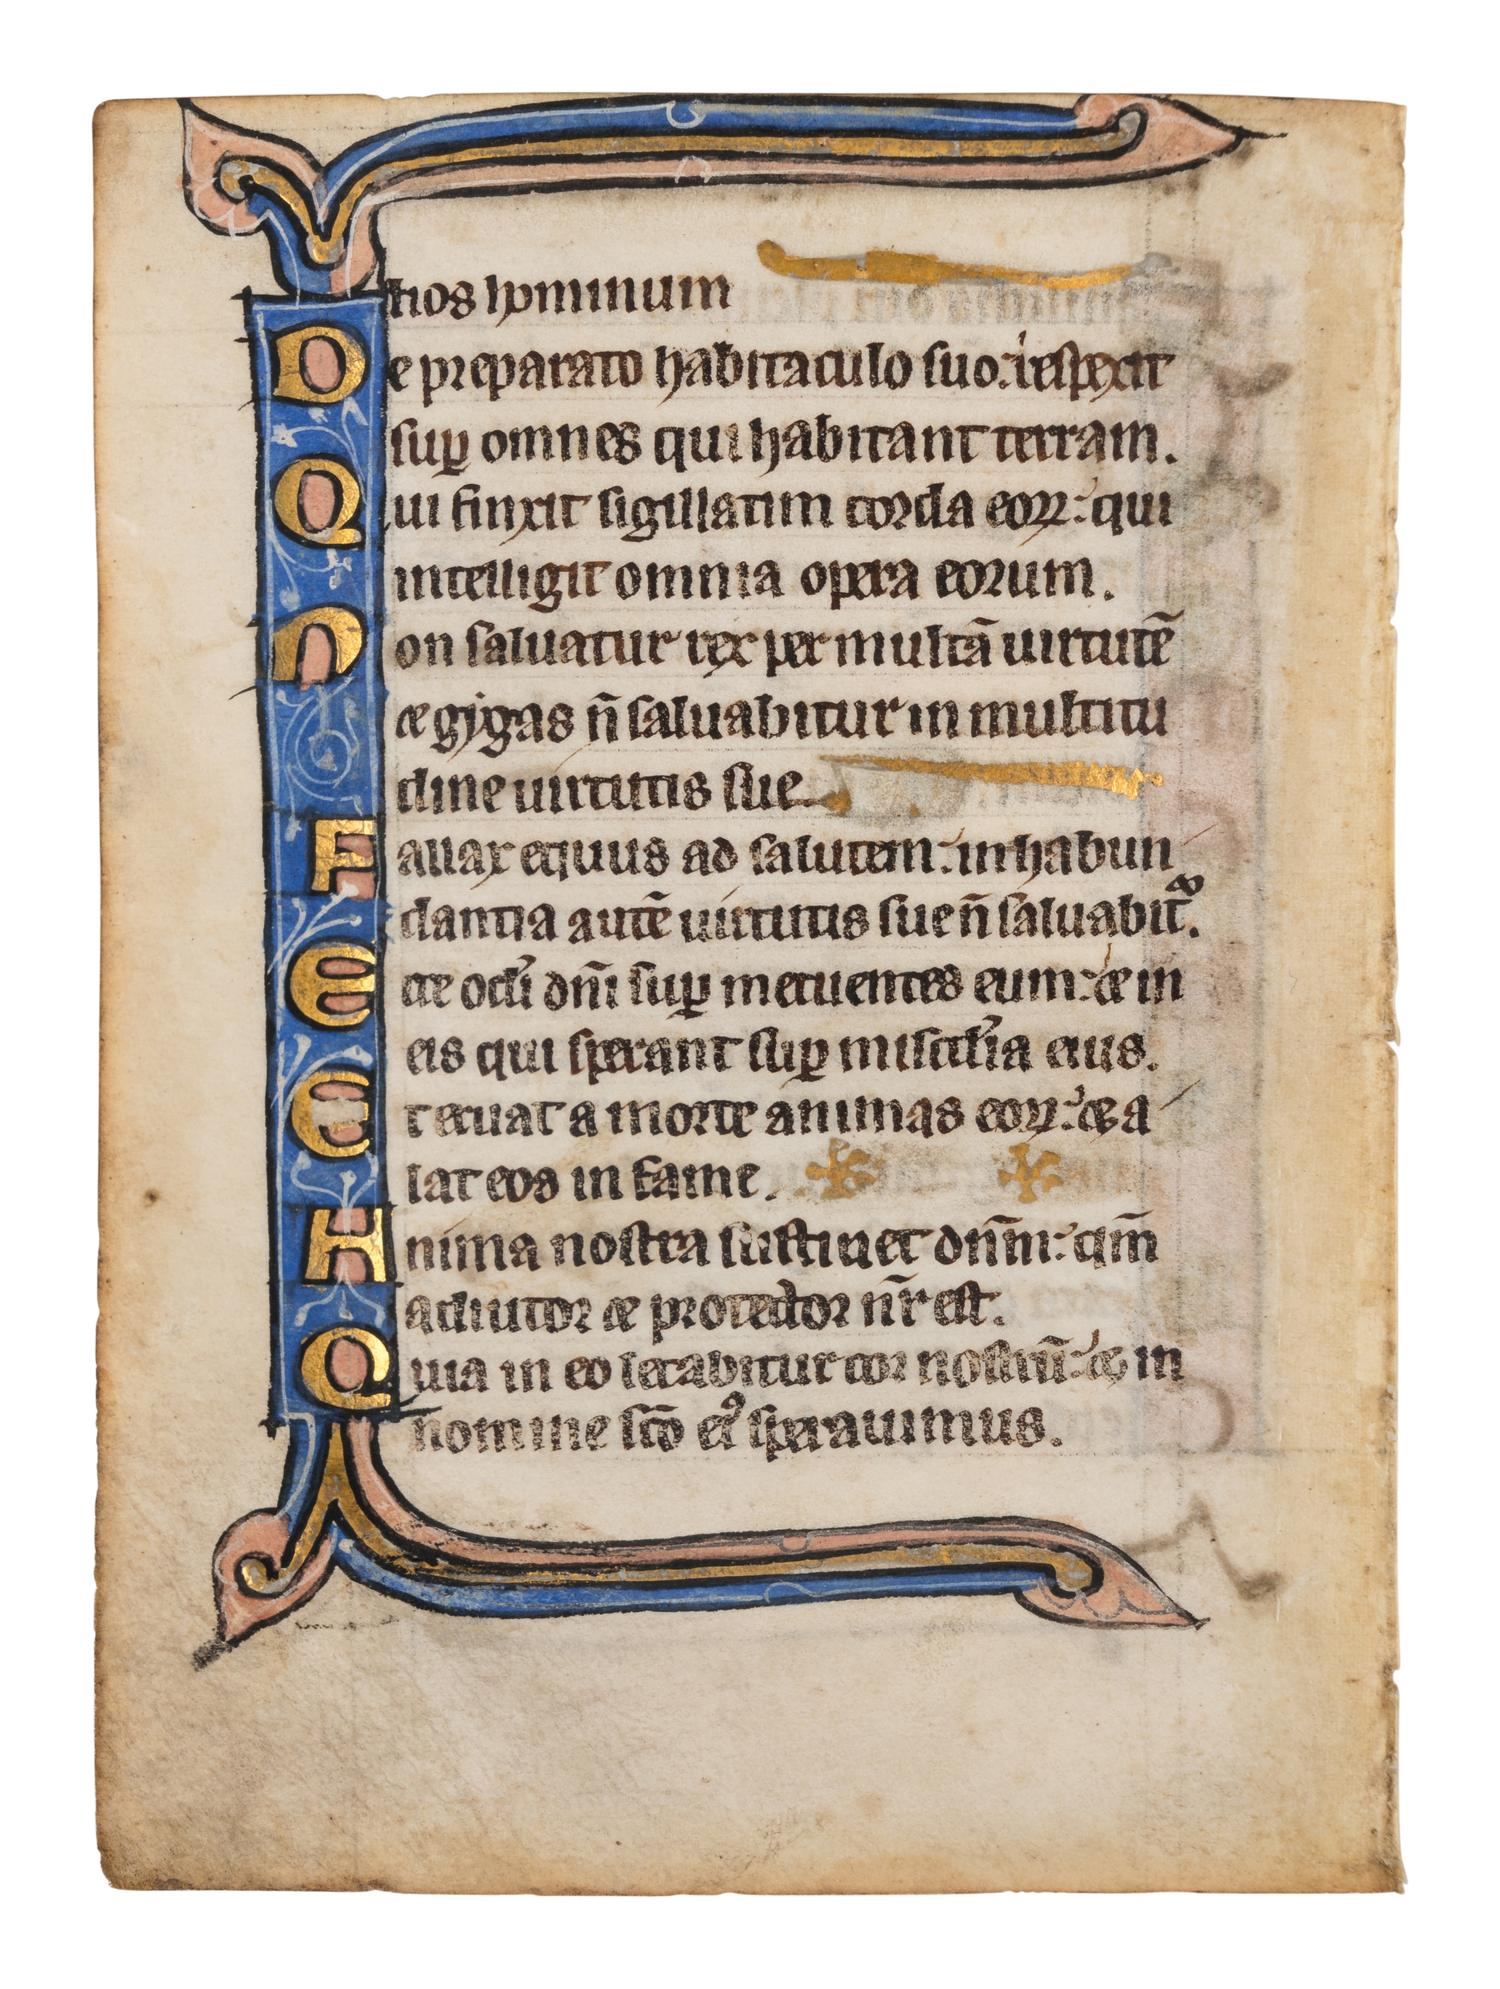 lios hominum
De preparato habitaculo suo: respexit
suꝑ omnes qui habitant terram.
Qui finxit sigillatim corda eoꝝ: qui
intelligit omnia opera eorum.
Non saluatur rex per multā uirtutē
& gygas ñ saluabitur in multitu
dine uirtutis sue.
Fallax equus ad salutem: in habun
dantia autē uirtutis sue ñ saluabit᷑.
Ecce ocl'i dñi suꝑ metuentes eum: & in
eis qui sperant suꝑ miscd'ia eius.
Et eruat a morte animas eoꝝ: & a
lat eos in fame.
Anima nostra sustinet dñm: qm̄
adiutor & protector nr̄ est.
Quia in eo letabitur cor nostrū: & in
nomine sc̄o eiꝰ sperauimus.